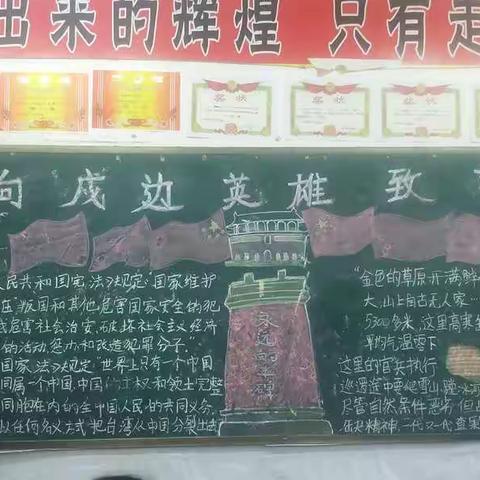 出来的辉煌 只有走
奖状
奖状
奖状
向戍边英雄致
人民共和国宪法》规定:"国家维护
叛国和其他危害国家安全的犯
危害社会治安、破坏社会主义经济
的活动,惩办和改造犯罪分子。"
国家法》规定:"世界上只有一个中国
同属一个中国,中国的主权和领土完整
同胞在内的全中国人民的共同义务。
以任何名义方式把台湾从中国分裂出去
永远的丰碑
"金色的草原开满鲜
大山上自古无人家…
5300多米,这里高寒
均气温零下
这里的官兵执行
巡逻途中要爬雪山,
尽管自然条件恶劣,但
精神,一代又一代